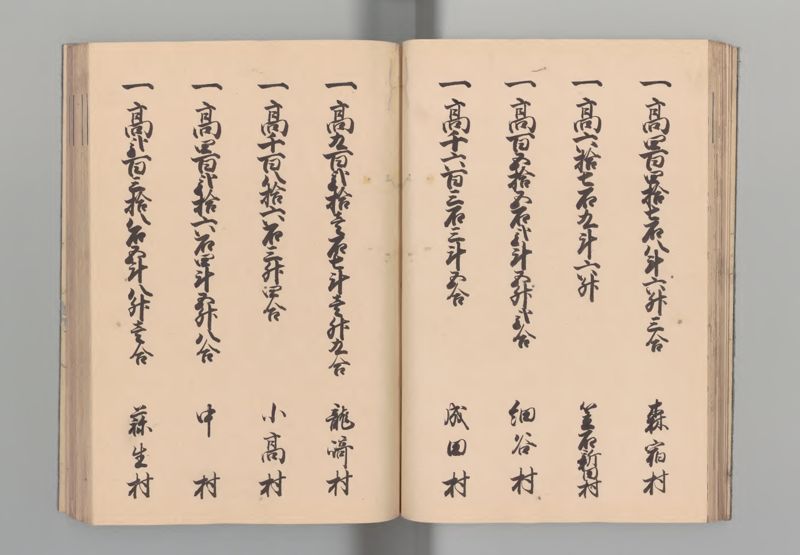 一 高四百四拾七石八斗六升三合 森宿村
一 高六拾七石九斗六升 笠石新田村
一 高百五拾五石弐斗五升弐合 細谷村
一 高千六百三石三斗五合 成田村
一 高九百弐拾壱石七斗壱升九合 龍崎村
一 高千百八拾六石三升四合 小高村
一 高四百弐拾六石四斗五升八合 中村
一 高弐百三拾八石五斗八升壱合 蒜生村